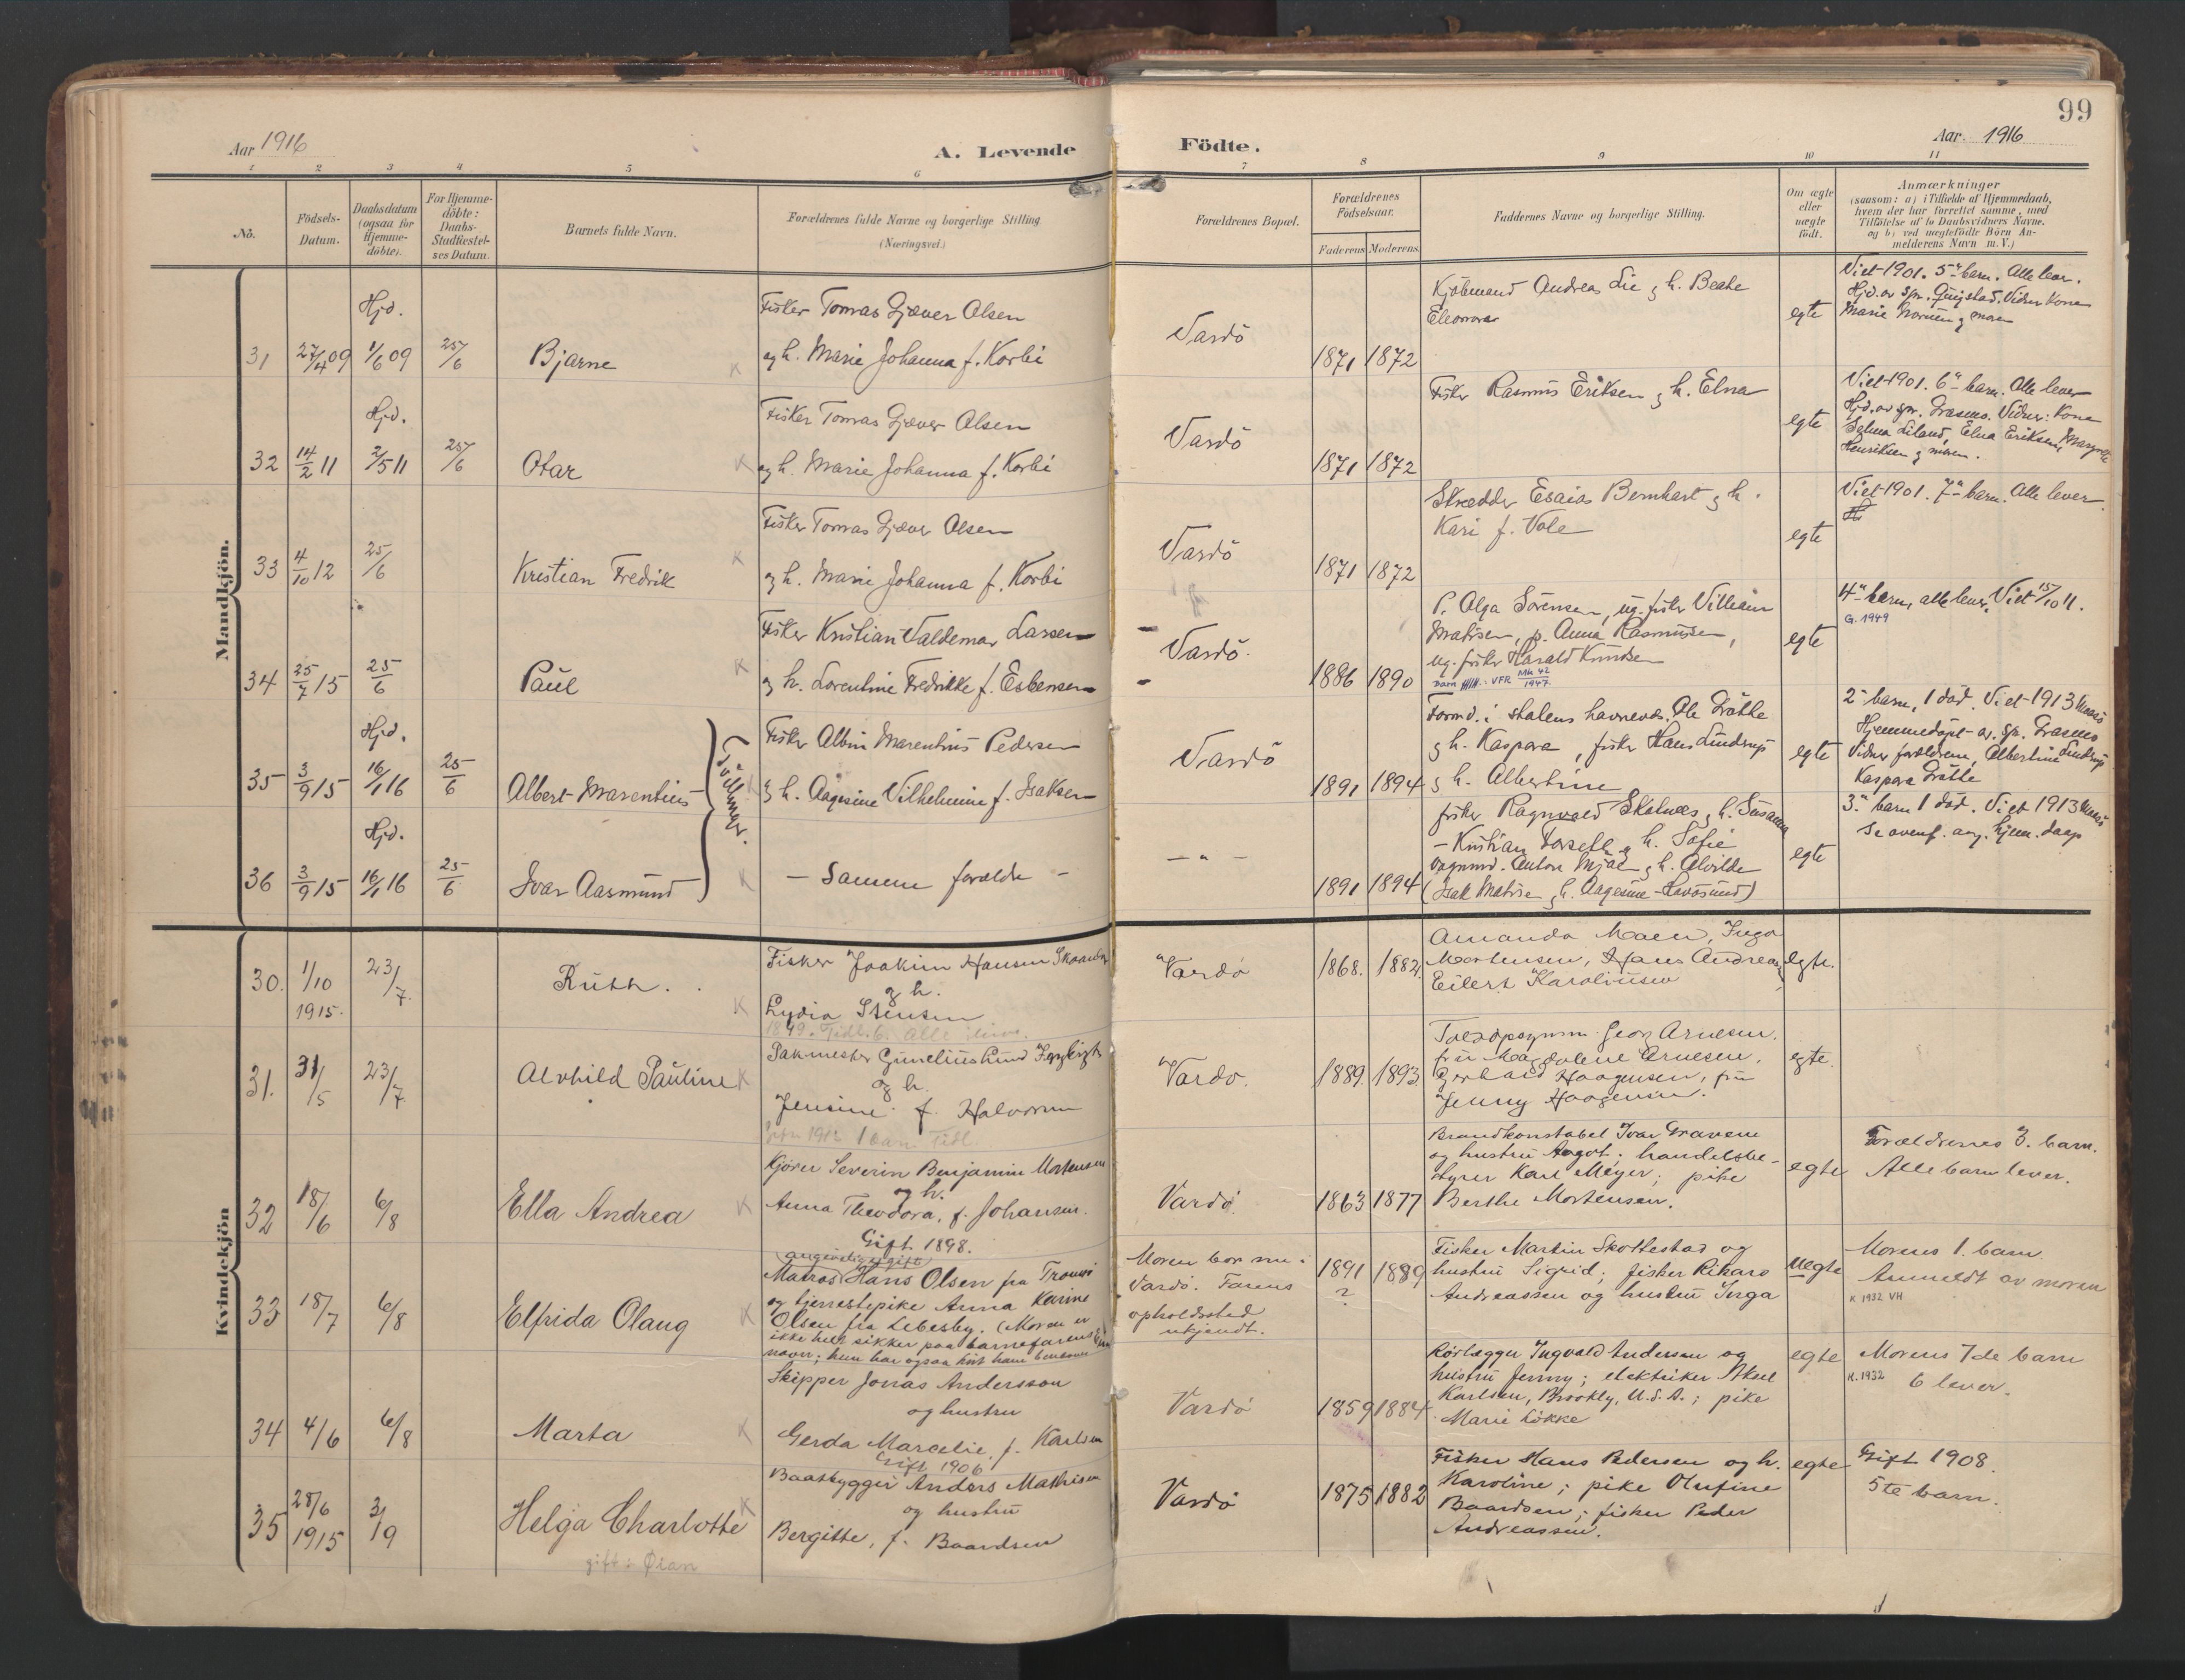 99
Aar 1916
A. Levende
Födte.
Aar 1916
1 2 3 4 5 6 7 8 9 10 11
No.
Födsels-Datum.
Daabsdatum (ogsaa for Hjemmedöbte).
For Hjemmedöbte: Daabs-Stadfæstelses Datum.
Barnets fulde Navn.
Forældrenes fulde Navne og borgerlige Stilling
(Næringsvei.)
Forældrenes Bopæl.
Forældrenes Födselsaar.
Faderens Moderens
Faddernes Navne og borgerlige Stilling.
Om ægte eller uægte födt.
Anmærkninger
(saasom: a) i Tilfælde af Hjemmedaab, hvem der har forrettet samme, med Tilföielse af to Daabsvidners Navne, og b) ved uægtefödte Börn Anmelderens Navn m. V.)
Mandkjön.
31 27/4 09 Hjd. 1/6 09 25/6 Bjarne
Fisker Tomas Gjæver Olsen
og h. Marie Johanna f. Korbi
Vardö 1871 1872
Kjöbmand Andreas Lie og h. Beate
Eleonora
egte
Viet 1901. 5te barn. Alle lever.
Marie
og moren
32 14/2 11 Hjd. 2/5 11 25/6 Otar
Fisker Tomas Gjæver Olsen
og h. Marie Johanna f. Korbi
Vardö 1871 1872
Fisker Rasmus Eriksen og h. Elna
egte
Viet 1901. 6te barn. Alle lever
Hjd. av spr. Grasmo. Vidner: Kone
Selma Liland, Elna Eriksen, Margrethe
Henriksen og moren.
33 4/10 12 25/6 Kristian Fredrik
Fisker Tomas Gjæver Olsen
og h. Marie Johanna f. Korbi
Vardö 1871 1872
Skrædder Esaias Bernhart og h.
Kari f. Vole
egte
Viet 1901. 7de barn. Alle lever.
34 25/7 15 25/6 Paul
Fisker Kristian Valdemar Larsen
og h. Lorentine Fredrikke f. Esbensen
Vardö 1886 1890
P. Olga Sörensen, ug. fisker Villiam
Mathisen, p. Anna Rasmussen,
ug. fisker Harald Knudsen
VFR Mk 42 1947.
egte
4de barn, alle lever. Viet 15/10 11.
G. 1949
35 3/9 15 Hjd. 16/1 16 25/6 Albert Marentius
Tvillinger.
Fisker Albin Marentius Pedersen
og h. Aagesine Vilhelmine f. Isaksen
Vardö 1891 1894
Formd. i statens havnevæs. Ole Dråtte
og h. Kaspara, fisker Hans Lindrup
og h. Albertine
egte
2det barn, 1 död. Viet 1913
Hjemmedöpt av spr. Grasmo
Vidner forældrene, Albertine Lindrup
Kaspara
36 3/9 15 Hjd. 16/1 16 25/6 Ivar Aasmund
– Samme forældre –
– " – 1891 1894
fisker Ragnvald Skotnes og h. Susanna
– Kristian og h. Sofie
Vognmd. Anton og h. Alvilde
(Isak Mathise og h. Aagesine – Havösund)
egte
3die barn 1 död. Viet 1913
Se ovenf. ang. hjem. daap
Kvindekjön
30. 1/10 1915. 23/7. Ruth.
Fisker Joakim Hansen
og h.
Lydia Stensen
Vardö 1868. 1882.
Amanda Moen, Inga
Mortensen, Hans Andreas,
Eilert Karoliusen
egte.
31. 31/5 23/7 Alvhild Pauline
Pakmester
og h.
Jensine f. Halvorsen
Vardö. 1889. 1893.
Georg Arnesen.
fru Magdalene Arnesen,
Gerhard Haagensen, fru
Jenny Haagensen.
egte.
32 18/6 6/8 Ella Andrea
Gjörer Severin Benjamin Mortensen
og h.
Anna Theodora, f. Johansen.
Gift 1898.
Vardö. 1863 1877
Brandkonstabel Ivar Gravem
og hustru Aagot; handelsbe-
styrer Karl Meyer; pike
Berthe Mortensen.
egte
Forældrenes 3. barn.
Alle barn lever.
33 18/7 6/8 Elfrida Olaug
(angivelig ugift)
Matros Hans Olsen fra Tromsö
og tjenestepike Anna Karine
Olsen fra Lebesby. (Moren er
ikke helt sikker paa barnefarens
navn; hun har ogsaa
Moren bor nu i
Vardö. Farens
opholdssted
ukjendt.
1891 ? 1889
Fisker Martin Skottestad og
hustru Sigrid; fisker Rikard
Andreassen og hustru Inga
uegte
Morens 1. barn.
Anmeldt av moren
K 1932 VH
34 4/6 6/8 Marta
Skipper Jonas Andersson
og hustru
Gerda Marcelie f. Karlsen
Gift 1906
Vardö 1859 1884
Rörlægger Ingvald Andersen og
hustru Jenny; elektriker Aksel
Karlsen, Brookly, U.S.A.; pike
Marie Lökke
egte
Morens 7de barn
K. 1932 6 lever.
35 28/6 1915 3/9 Helga Charlotte
gift: Øian
Baatbygger Anders Mathisen
og hustru
Bergitte, f. Baardsen
Vardö 1875 1882
Fisker Hans Pedersen og h.
Karoline; pike Olufine
Baardsen; fisker Peder
Andreassen.
egte
Gift 1908.
5te barn.